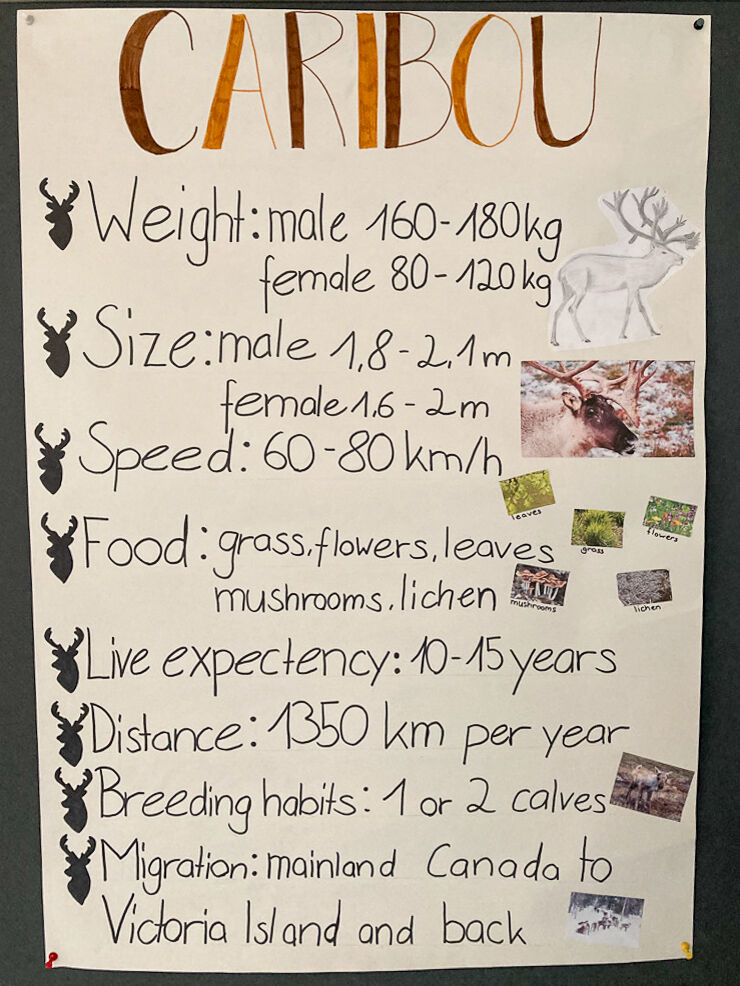 CARIBOU
Weight: male 160-180kg
female 80-120kg
Size: male 1,8-2,1m
female 1,6-2m
Speed: 60-80 km/h
leaves
grass
flowers
Food: grass, flowers, leaves
mushrooms, lichen
mushrooms
lichen
Live expectency: 10-15 years
Distance: 1350 km per year
Breeding habits: 1 or 2 calves
Migration: mainland Canada to
Victoria Island and back